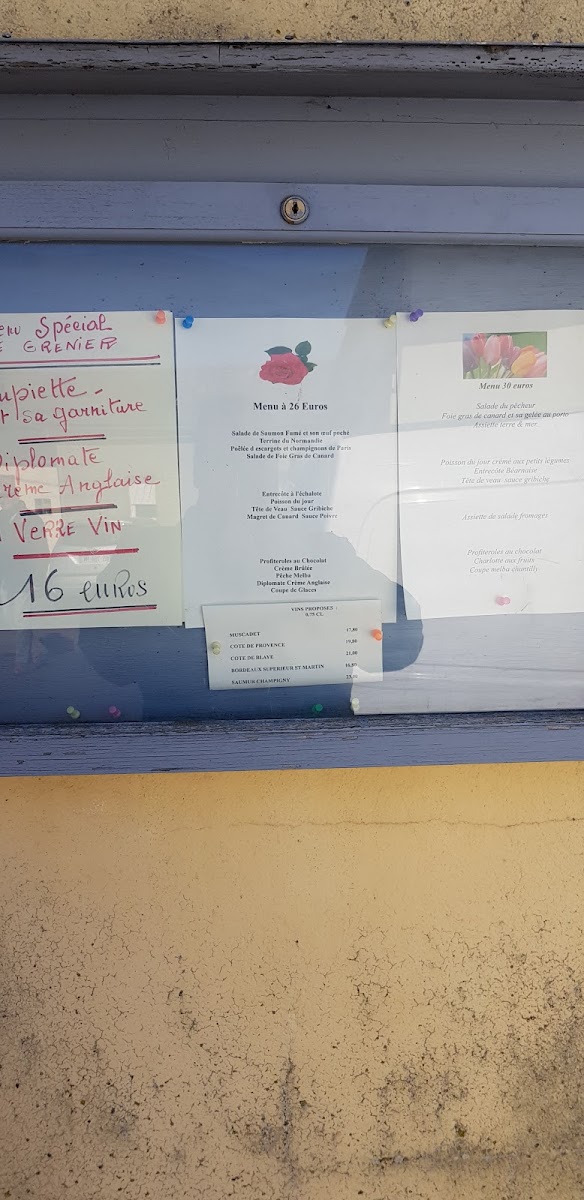 Spécial
GRENIER
sa garniture
Anglaise
VERRE VIN
16 euros
Menu à 26 Euros
Salade de Saumon Fumé et son œuf poché
Terrine du Normandie
Poêlée d escargots et champignons de Paris
Salade de Foie Gras de Canard
Entrecôte à l'échalote
Poisson du jour
Tête de Veau Sauce Gribiche
Magret de Canard Sauce Poivre
Profiteroles au Chocolat
Crème Brûlée
Pêche Melba
Diplomate Crème Anglaise
Coupe de Glaces
VINS PROPOSES :
0.75 CL
MUSCADET 17,80
COTE DE PROVENCE 19,80
COTE DE BLAYE 21,80
BORDEAUX SUPERIEUR ET MARTIN
SAUMUR CHAMPIGNY
Menu 30 euros
Salade du pêcheur
Foie gras de canard et sa gelée au porto
Assiette terre & mer
Poisson du jour crémé aux petits légumes
Entrecôte Béarnaise
Tête de veau sauce gribiche
Assiette de salade fromages
Profiteroles au chocolat
Charlotte aux fruits
Coupe melba chantilly